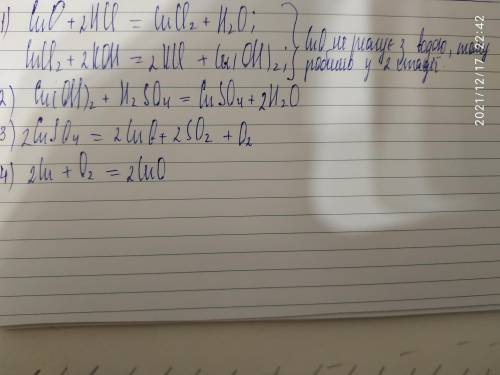 1) CuO + 2HCl = CuCl₂ + H₂O;
CuCl₂ + 2KOH = 2KCl + Cu(OH)₂;
CuO не реагує з водою, тому
робимо у 2 стадії
2) Cu(OH)₂ + H₂SO₄ = CuSO₄ + 2H₂O
3) 2CuSO₄ = 2CuO + 2SO₂ + O₂
4) 2Cu + O₂ = 2CuO
2021/12/17 22:42